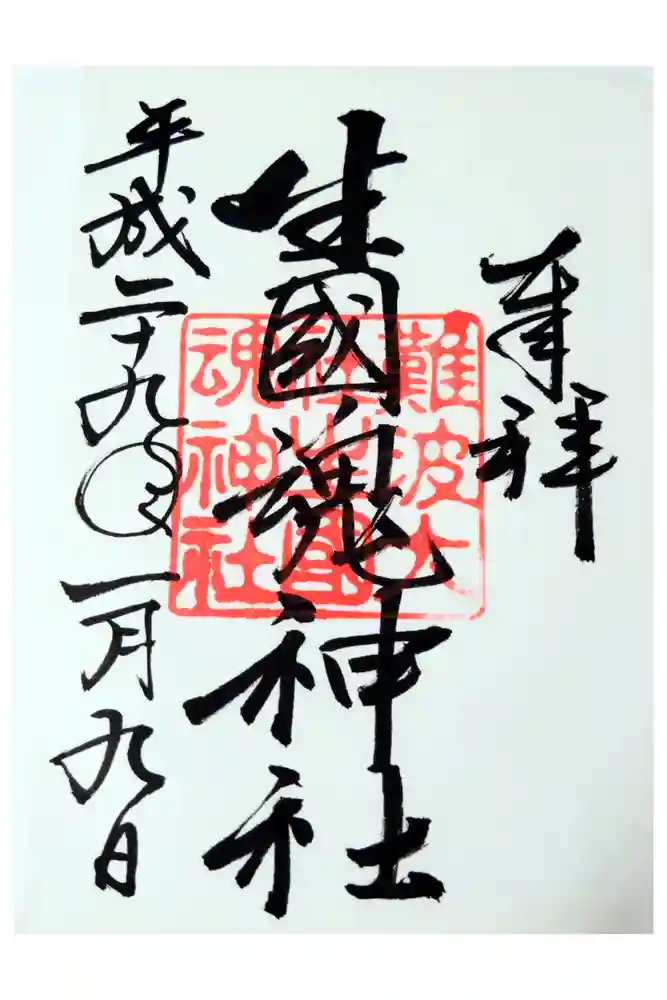 奉拝
生國魂神社
平成二十九年一月九日
難波大
社生國
魂神社